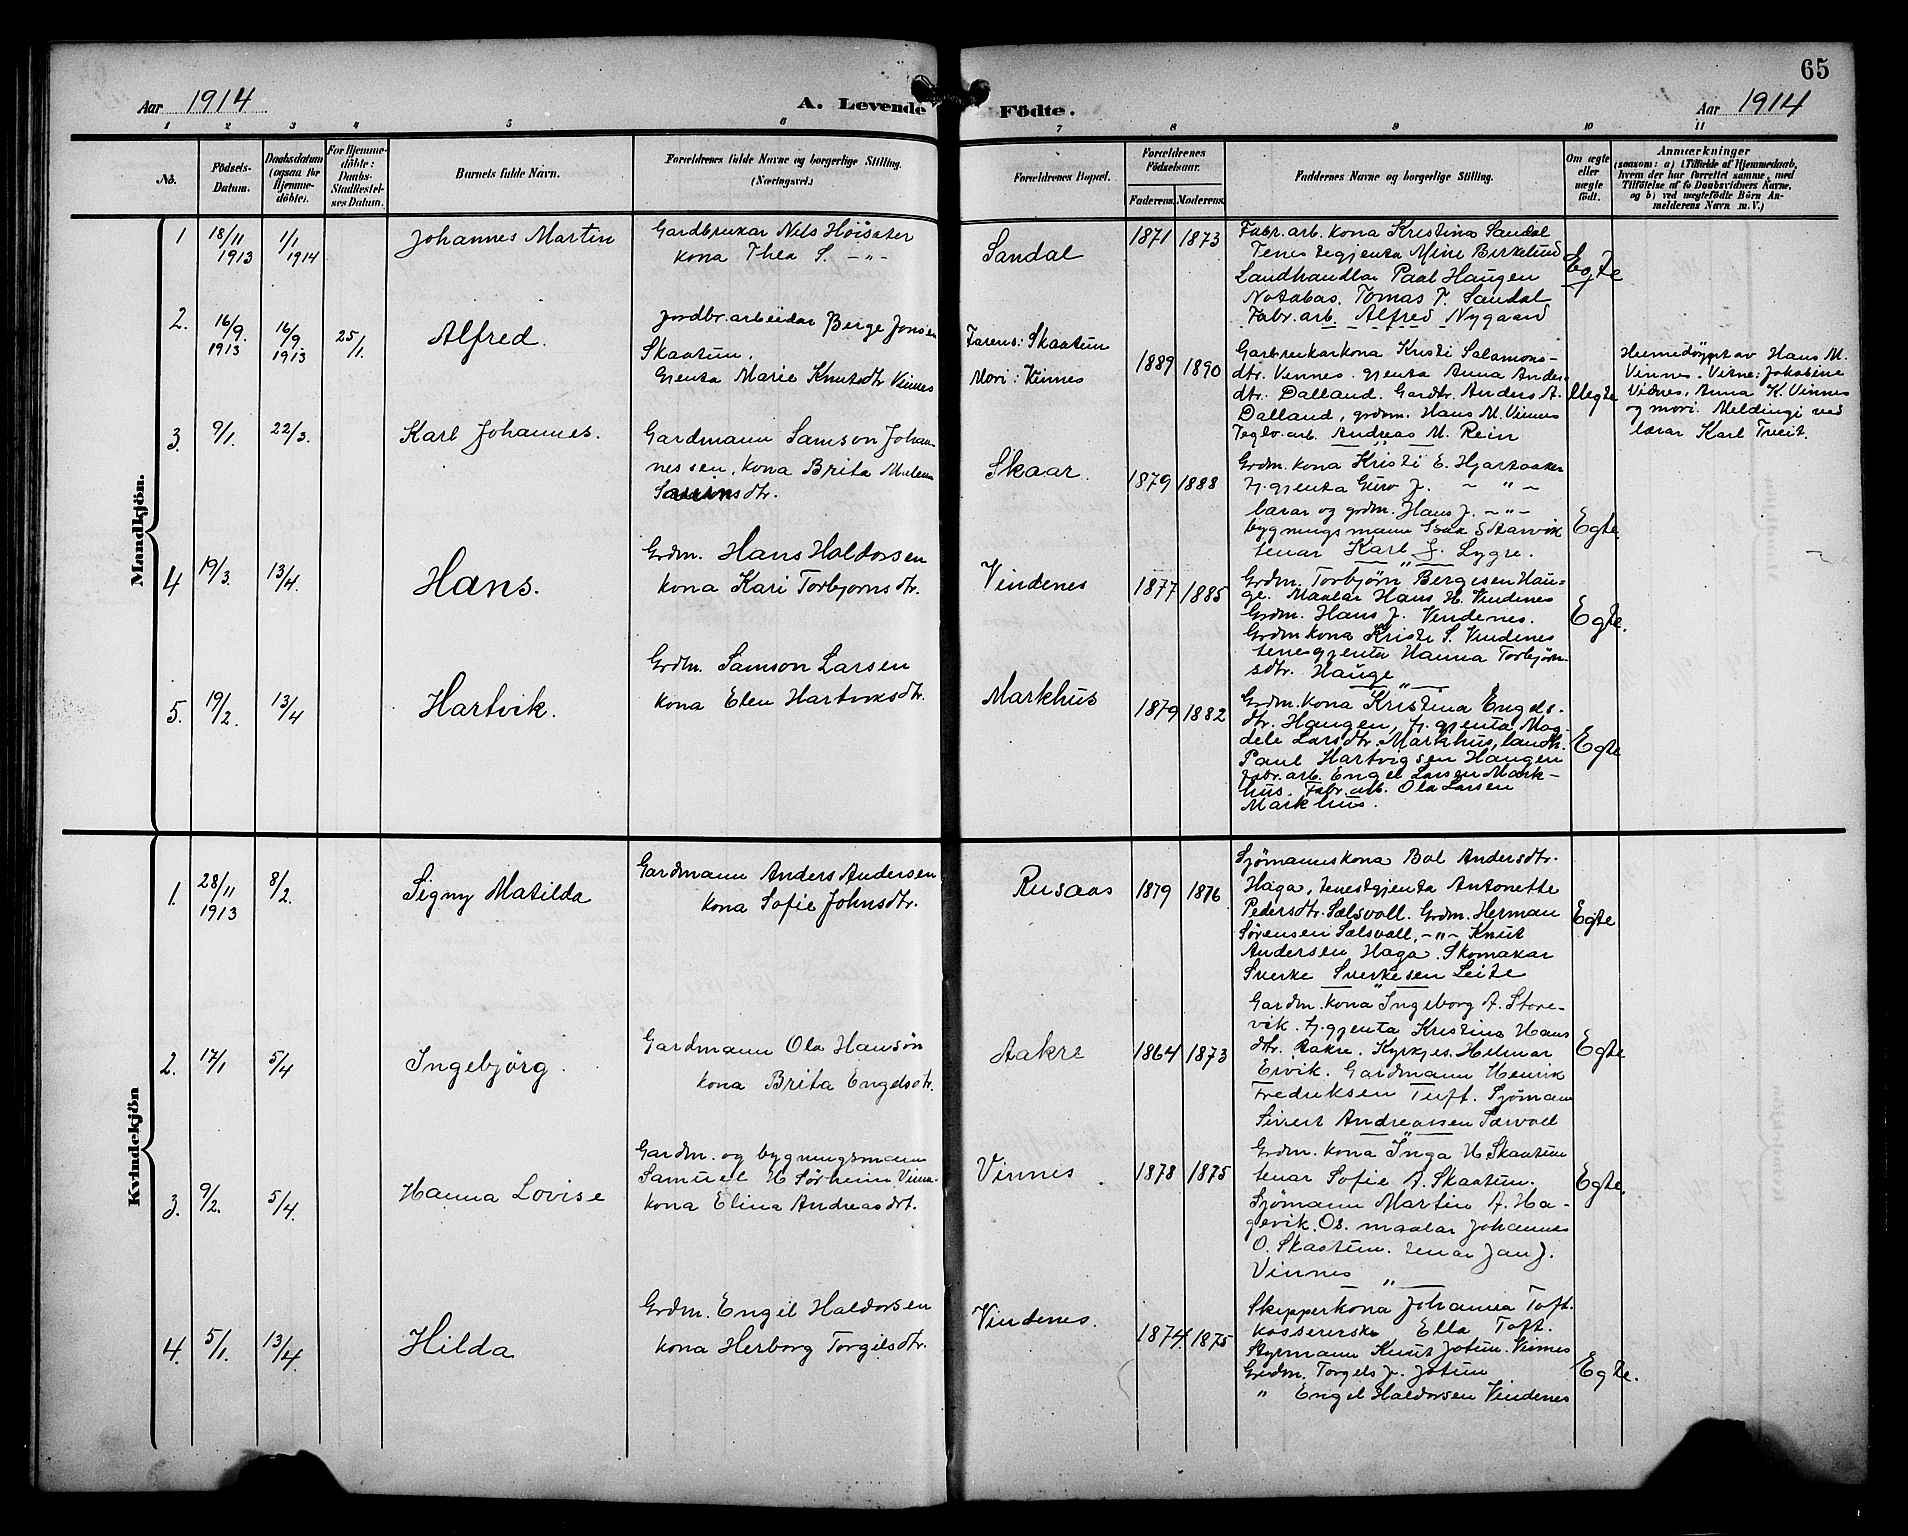 65
Aar 1914
A. Levende Födte.
Aar 1914
1 2 3 4 5 6 7 8 9 10 11
No.
Födsels-
Datum.
Daabsdatum
(ogsaa for
Hjemme-
döbte).
For Hjemme-
döbte:
Daabs-
Stadfæstel-
ses Datum.
Barnets fulde Navn.
Forældrenes fulde Navne og borgerlige Stilling.
(Næringsvei.)
Forældrenes Bopæl.
Forældrenes
Födselsaar.
Faderens. Moderens.
Faddernes Navne og borgerlige Stilling.
Om ægte
eller
uægte
födt.
Anmærkninger
(saasom: a) i Tilfælde af Hjemmedaab,
hvem der har forrettet samme, med
Tilföielse af to Daabsvidners Navne,
og b) ved uægtefödte Börn An-
melderens Navn m. V.)
Mandkjön.
1
18/11
1913
1/1
1914
Johannes Martin
Gardbrukar Nils Höisæter
kona Thea S. -"-
Sandal
1871 1873
Fabr. arb. kona Kristina Sandal
Tenestegjenta Mine Birkelund
Landhandlar Paal Haugen
Notabas. Tomas T. Sandal
Fabr. arb. Alfred Nygaard
Egte
2.
16/9.
1913
16/9.
1913
25/1.
Alfred.
Jordbr. arbeidar Berge Jonsen
Skaatun.
Gjenta Marie Knutsdtr Vinnes
Farens: Skaatun
Mori: Vinnes
1889 1890
Garbrukarkona Kristi Salamons-
dtr. Vennes. gjenta Anna Anders
dtr. Dalland. Gardbr. Anders A.
Dalland, grdm. Hans M. Vinnes
Teglv. arb. Andreas M. Rein
Uegte
Heimedöypt av Hans M.
Vinnes. Vitne: Jakobine
Vidnes, Anna K. Vinnes
og mori. Meldingi ved
lærar Karl Tveit.
3.
9/1.
22/3.
Karl Johannes.
Gardmann Samson Johan-
nessen, kona Brita
Skaar.
1879 1888
Grdm. kona Kristi E. Hjartaaker
h. gjenta Guro J. - " -
lærar og grdm. Hans J. -"-
bygningsmann Isak Starvik
tenar Karl J. Lygre.
Egte
4
19/3.
13/4.
Hans.
Grdm. Hans Haldorsen
kona Kari Torbjornsdtr.
Vindenes
1877 1885
Grdm. Torbjørn Bergesen Hau-
ge. Maalar Hans H. Vindenes
Grdm. Hans J. Vindenes.
Grdm kona Kristi S. Vindenes
tenesgjenta Hanna Torbjørn-
sdtr. Hauge
Egte.
5.
19/2.
13/4
Hartvik.
Grdm. Samson Larsen
kona Elen Hartviksdtr.
Markhus
1879 1882
Grdm. kona Kristina Engels-
dtr. Haugen, h. gjenta Mag-
dele Larsdtr. Markhus, landh.
Paul Hartvigsen Haugen
fabr. arb. Engel Larsen Mark-
hus. Fabr. arb. Ola Larsen
Markhus.
Egte
Kvindekjön
1.
28/11
1913
8/2.
Signy Matilda
Gardmann Anders Andersen
kona Sofie Johnsdtr.
Rusaas
1879 1876
Sjömannskona Bol Andersdtr.
Haga, tenestgjenta Antonette
Pedersdtr. Sælsvoll. Grdm. Herman
Sørensen Sælsvoll, -"- Knut
Andersen Haga. Skomakar
Sverke Sverkesen Leite
Egte
2.
17/1
5/4
Ingebjörg.
Gardmann Ola Hansön
kona Brita Engelsdtr.
Aakre
1864 1873
Gardm. kona Ingeborg A. Store-
vik. h. gjenta Kristina Hans
dtr. Aakre. Kyrkjes. Helmar
Eivik. Gardmann Henrik
Fredriksen Tuft. Sjömann
Sivert Andreassen Særvoll
Egte
3.
9/2.
5/4.
Hanna Lovise
Gardm. og bygningsmann
Samuel H Sørheim Vinnes
kona Elina Andreasdrt.
Vinnes
1878 1875
Grdm. kona Inga H Skaatun
tenar Sofie A. Skaatun.
Sjömann Martin A. Ha-
gevik, Os. maalar Johannes
O. Skaatun. tenar Jan J.
Vinnes
Egte.
4.
5/1.
13/4.
Hilda
Grdm. Engel Haldorsen
kona Herborg Torgilsdtr.
Vindenes.
1874. 1875
Skipperkona Johanna Toft.
kassererske Ella Toft.
Styrmann Knut Jotun. Vinnes
Grdm. Torgels J. Jotun
" Engel Haldorsen Vindenes
Egte.